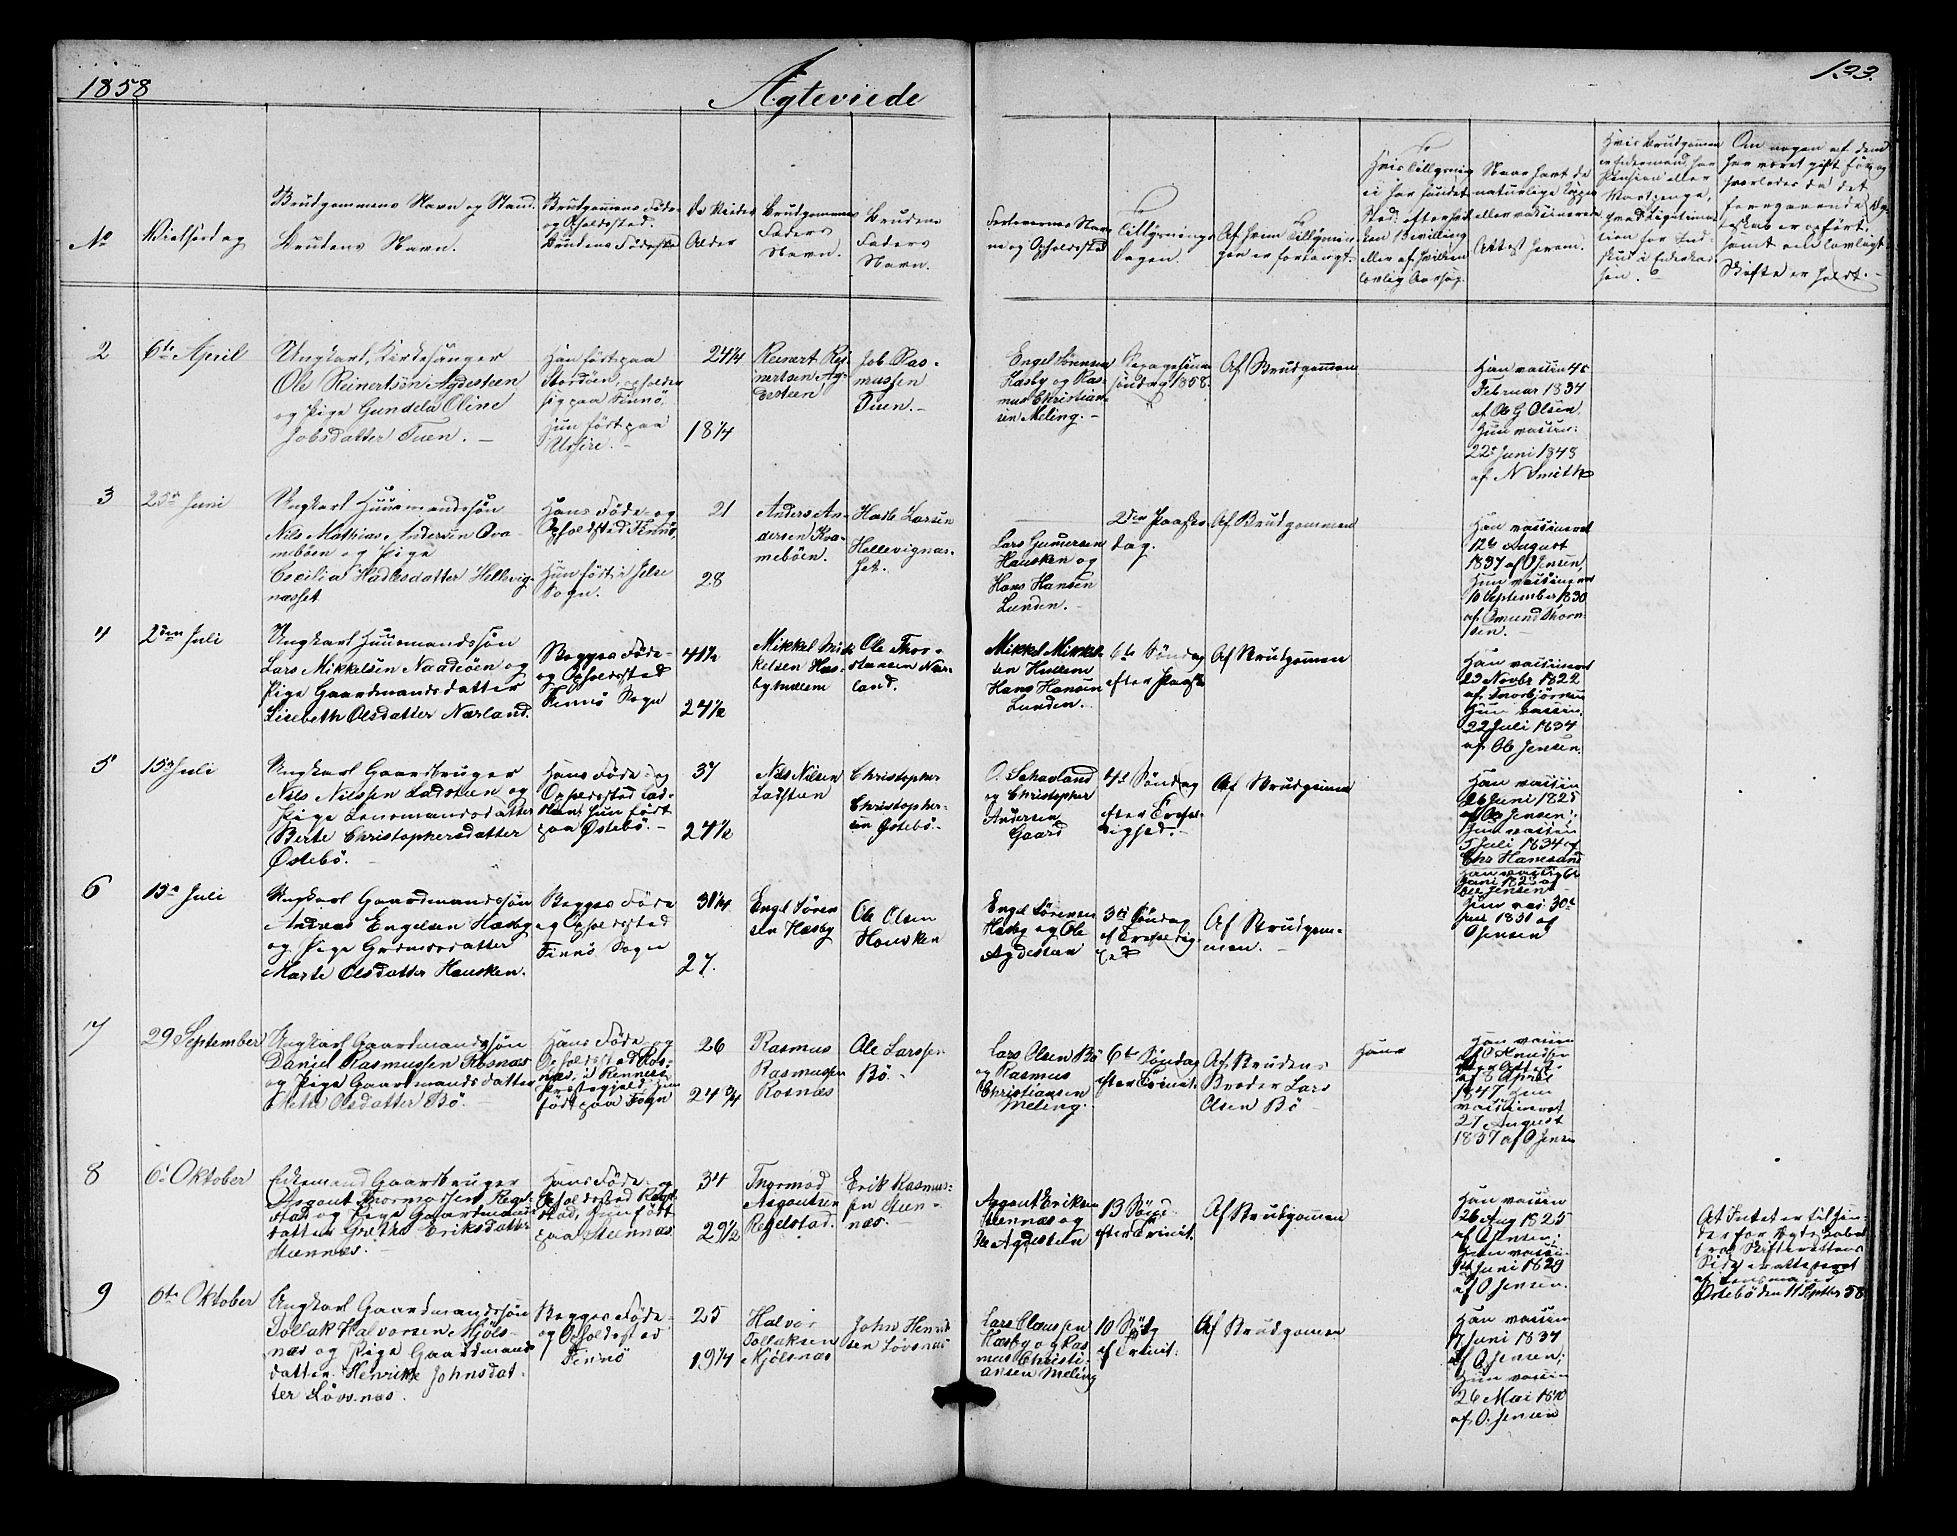 1858
Ægteviede
133.
No
Vielsesdag
Brudgommens Navn og Stand.
Brudens Navn.
Brudgommens Føde-
og Opholdssted.
Brudens Fødested
De Viedes
Alder
Brudgommens
Faders
Navn.
Brudens
Faders
Navn.
Forlovernes Nav-
ne og Opholdssted
Tillysnings
Dagen.
Af hvem Tillysnin-
gen er forlangt.
Hvis Tillysning
ei har fundet
Sted: efter hvil-
ken Bevilling
eller af hvilken
lovlig Aarsag.
Naar havt de
naturlige Kopper
eller vaccinerede
Attest herom.
Hvis Brudgommen
er Enkemand, har
Pension eller
Om nogen af dem
har været gift før og
hvorledes da det
foregaaende Æg-
teskab er ophørt,
samt om lovligt
Skifte er holdt.
2
6te April
Ungkarl, Kirkesanger
Ole Reinertsen Agdesteen
og Pige Gundela Oline
Jobsdatter Tuen.
Han født paa
Stordøen, opholder
sig paa Finnø
Hun født paa
Utsire.
24 1/4
18 1/4
Reinert Rei-
nertsen Ag-
desteen
Job Ras-
mussen
Tuen.
Engel Sørensen
Hæsby og Ras-
mus Christian-
sen Meling.
søndag 1858.
Af Brudgommen
Han vaccin 4de
Februar 1834
af Ole G Olsen
Hun vaccin:
22de Juni 1848
af N Smith
3
25de Juni
Ungkarl Huusmandssøn
Nils Mathias Andersen Qva-
mebøen og Pige
Cecilia Hadlesdatter Hellevig-
næsset
Hans Føde- og
Opholdssted Finnø
Hun født i Jelse
Sogn.
21
28
Anders An-
dersen Kva-
mebøen.
Hadle Larsen
Hellevignæs-
set.
Lars Gunnersen
Hausken og
Hans Hansen
Lunden.
2den Paaske-
dag.
Af Brudgommen
Han vaccineret
12te August
1837 af O Jensen
Hun vaccineret
10 September 1830
af Omund Thorn-
sen.
4
2den Juli
Ungkarl Huusmandssøn
Lars Mikkelsen Naadeøen og
Pige Gaardmandsdatter
Lisebeth Olsdatter Nærland.
Begges Føde-
og Opholdssted
Finnø Sogn
41 1/2
24 1/2
Mikkel Mik-
kelsen Hæs-
byhullem
Ole Thor-
stensen Nær-
land.
Mikkel Mikkel-
sen Hullem
Hans Hansen
Lunden.
6te Søndag
efter Paaske
Af Brudgommen
Han vaccineret
23 Novbr 1822
af Thorbjørnsen
Hun vaccin.
22 Juli 1834
af Ole Jensen.
5
15de Juli
Ungkarl Gaardbruger
Nils Nilssen Ladsteen og
Pige Lensmandsdatter
Berte Christophersdatter
Østebø.
Hans Føde- og
Opholdssted Lad-
steen, Hun født
paa Østebø.
37
24 1/2
Nils Nilsen
Ladsteen
Christopher
Christopher-
sen Østebø.
O. Schavland
og Christopher
Andersen
Gaard
4de Søndag
efter Trefol-
dighed.
Af Brudgommen
Han vaccin
26 Juni 1825
af O Jensen;
Hun vaccin
5 Juli 1834 af
Chr Hanesand
6
15de Juli
Ungkarl Gaardmandssøn
Andreas Engelsen Hæsby
og Pige Gaardmandsdatter
Marte Olsdatter Hausken.
Begges Føde
og Opholdssted
Finnø Sogn
31 1/4
27.
Engel Søren-
sen Hæsby
Ole Olsen
Hausken
Engel Sørensen
Hæsby og Ole
Agdesteen
3die Søndag
ef Trefoldig-
hed
Af Brudgom-
men.
Han vaccin 6te
Juni 1825 af
Ole Jensen
Hun vac 30te
Juni 1831 af
O Jensen
7
29 September
Ungkarl Gaardmandssøn
Daniel Rasmussen Rosnæs
og Pige Gaardmandsdatter
Olsdatter Bø.
Hans Føde og
Opholdssted Ros-
næs, i Rennesø
Præstegjeld, Hun
født paa Fogn
26
24 3/4
Rasmus
Rasmussen
Rosnæs
Ole Larssen
Bø.
Lars Olsen Bø
og Rasmus
Christiansen
Meling.
6te Søndag
efter Trinit.
Af Brudens
Broder Lars
Olsen Bø
Han vaccin
af O Knudsen
efter Attest
af 8 April
1847. Hun
vaccineret
27 August
1837 af O Jensen
8
6te Oktober
Enkemand Gaardbruger
Asgaut Thormodsen Regel-
stad og Pige Gaardmands-
datter Grethe Eriksdatter
Steennæs.
Hans Føde- og
Opholdssted Regel-
stad, Hun født
paa Steennæs
34
29 1/2
Thormod
Asgautsen
Regelstad.
Erik Rasmus-
sen Steen-
næs.
Asgaut Eriksen
Steennæs og
Ole Agdesteen
13 Sønd
efter Trinit.
Af Brudgommen
Han vaccin
26 Aug 1825
af O Jensen;
Hun vaccin
Juni 1829
af O Jensen.
At Intet er til Hin-
der for Ægteskabet
fra Skifterettens
Side er attesteret
af Lensmand
Østebø den 11 Septbr 58
9
6te Oktober
Ungkarl Gaardmandssøn
Tollak Halvorsen Mjøls-
næs og Pige Gaardmands
datter Henrikke Johnsdat-
ter Løvsnæs.
Begges Føde-
og Opholdssted
Finnø
25
19 1/4
Halvor
Tollaksen
Mjølsnæs
John Henrik-
sen Løvsnæs
Lars Claussen
Hæsby og Ras-
mus Christi-
ansen Meling
10 Sødg
ef Trinit:
Af Brudgommen
Han vaccin
7 Juni 1834
af O Jensen;
Hun vaccin
26 Mai 1840
af O. Jensen